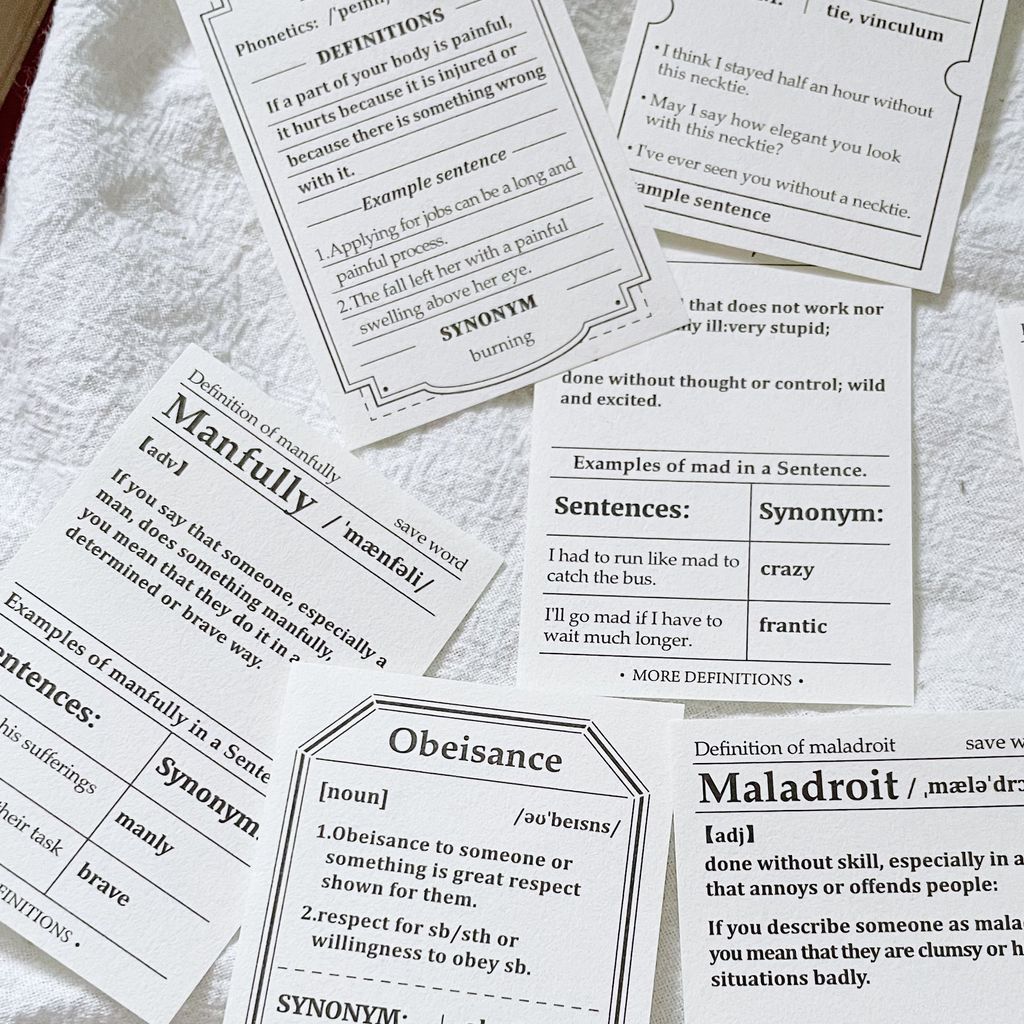 Phonetics: /ˈpeɪnfl/
DEFINITIONS
If a part of your body is painful,
it hurts because it is injured or
because there is something wrong
with it.
Example sentence
1.Applying for jobs can be a long and
painful process.
2.The fall left her with a painful
swelling above her eye.
SYNONYM
burning
tie, vinculum
• I think I stayed half an hour without
this necktie.
• May I say how elegant you look
with this necktie?
• I've ever seen you without a necktie.
ample sentence
that does not work nor
ly ill:very stupid;
done without thought or control; wild
and excited.
Examples of mad in a Sentence.
Sentences:
Synonym:
I had to run like mad to
catch the bus.
crazy
I'll go mad if I have to
wait much longer.
frantic
• MORE DEFINITIONS •
Definition of manfully
save word
Manfully / ˈmænfəli/
【adv】
If you say that someone, especially a
man, does something manfully,
you mean that they do it in a
determined or brave way.
Examples of manfully in a Sente
entences:
Synonym
his sufferings
manly
heir task
brave
FINITIONS •
Obeisance
[noun]
/əʊˈbeɪsns/
1.Obeisance to someone or
something is great respect
shown for them.
2.respect for sb/sth or
willingness to obey sb.
SYNONYM:
Definition of maladroit
save w
Maladroit / ˌmæləˈdrɔ
【adj】
done without skill, especially in a
that annoys or offends people:
If you describe someone as mala
you mean that they are clumsy or h
situations badly.